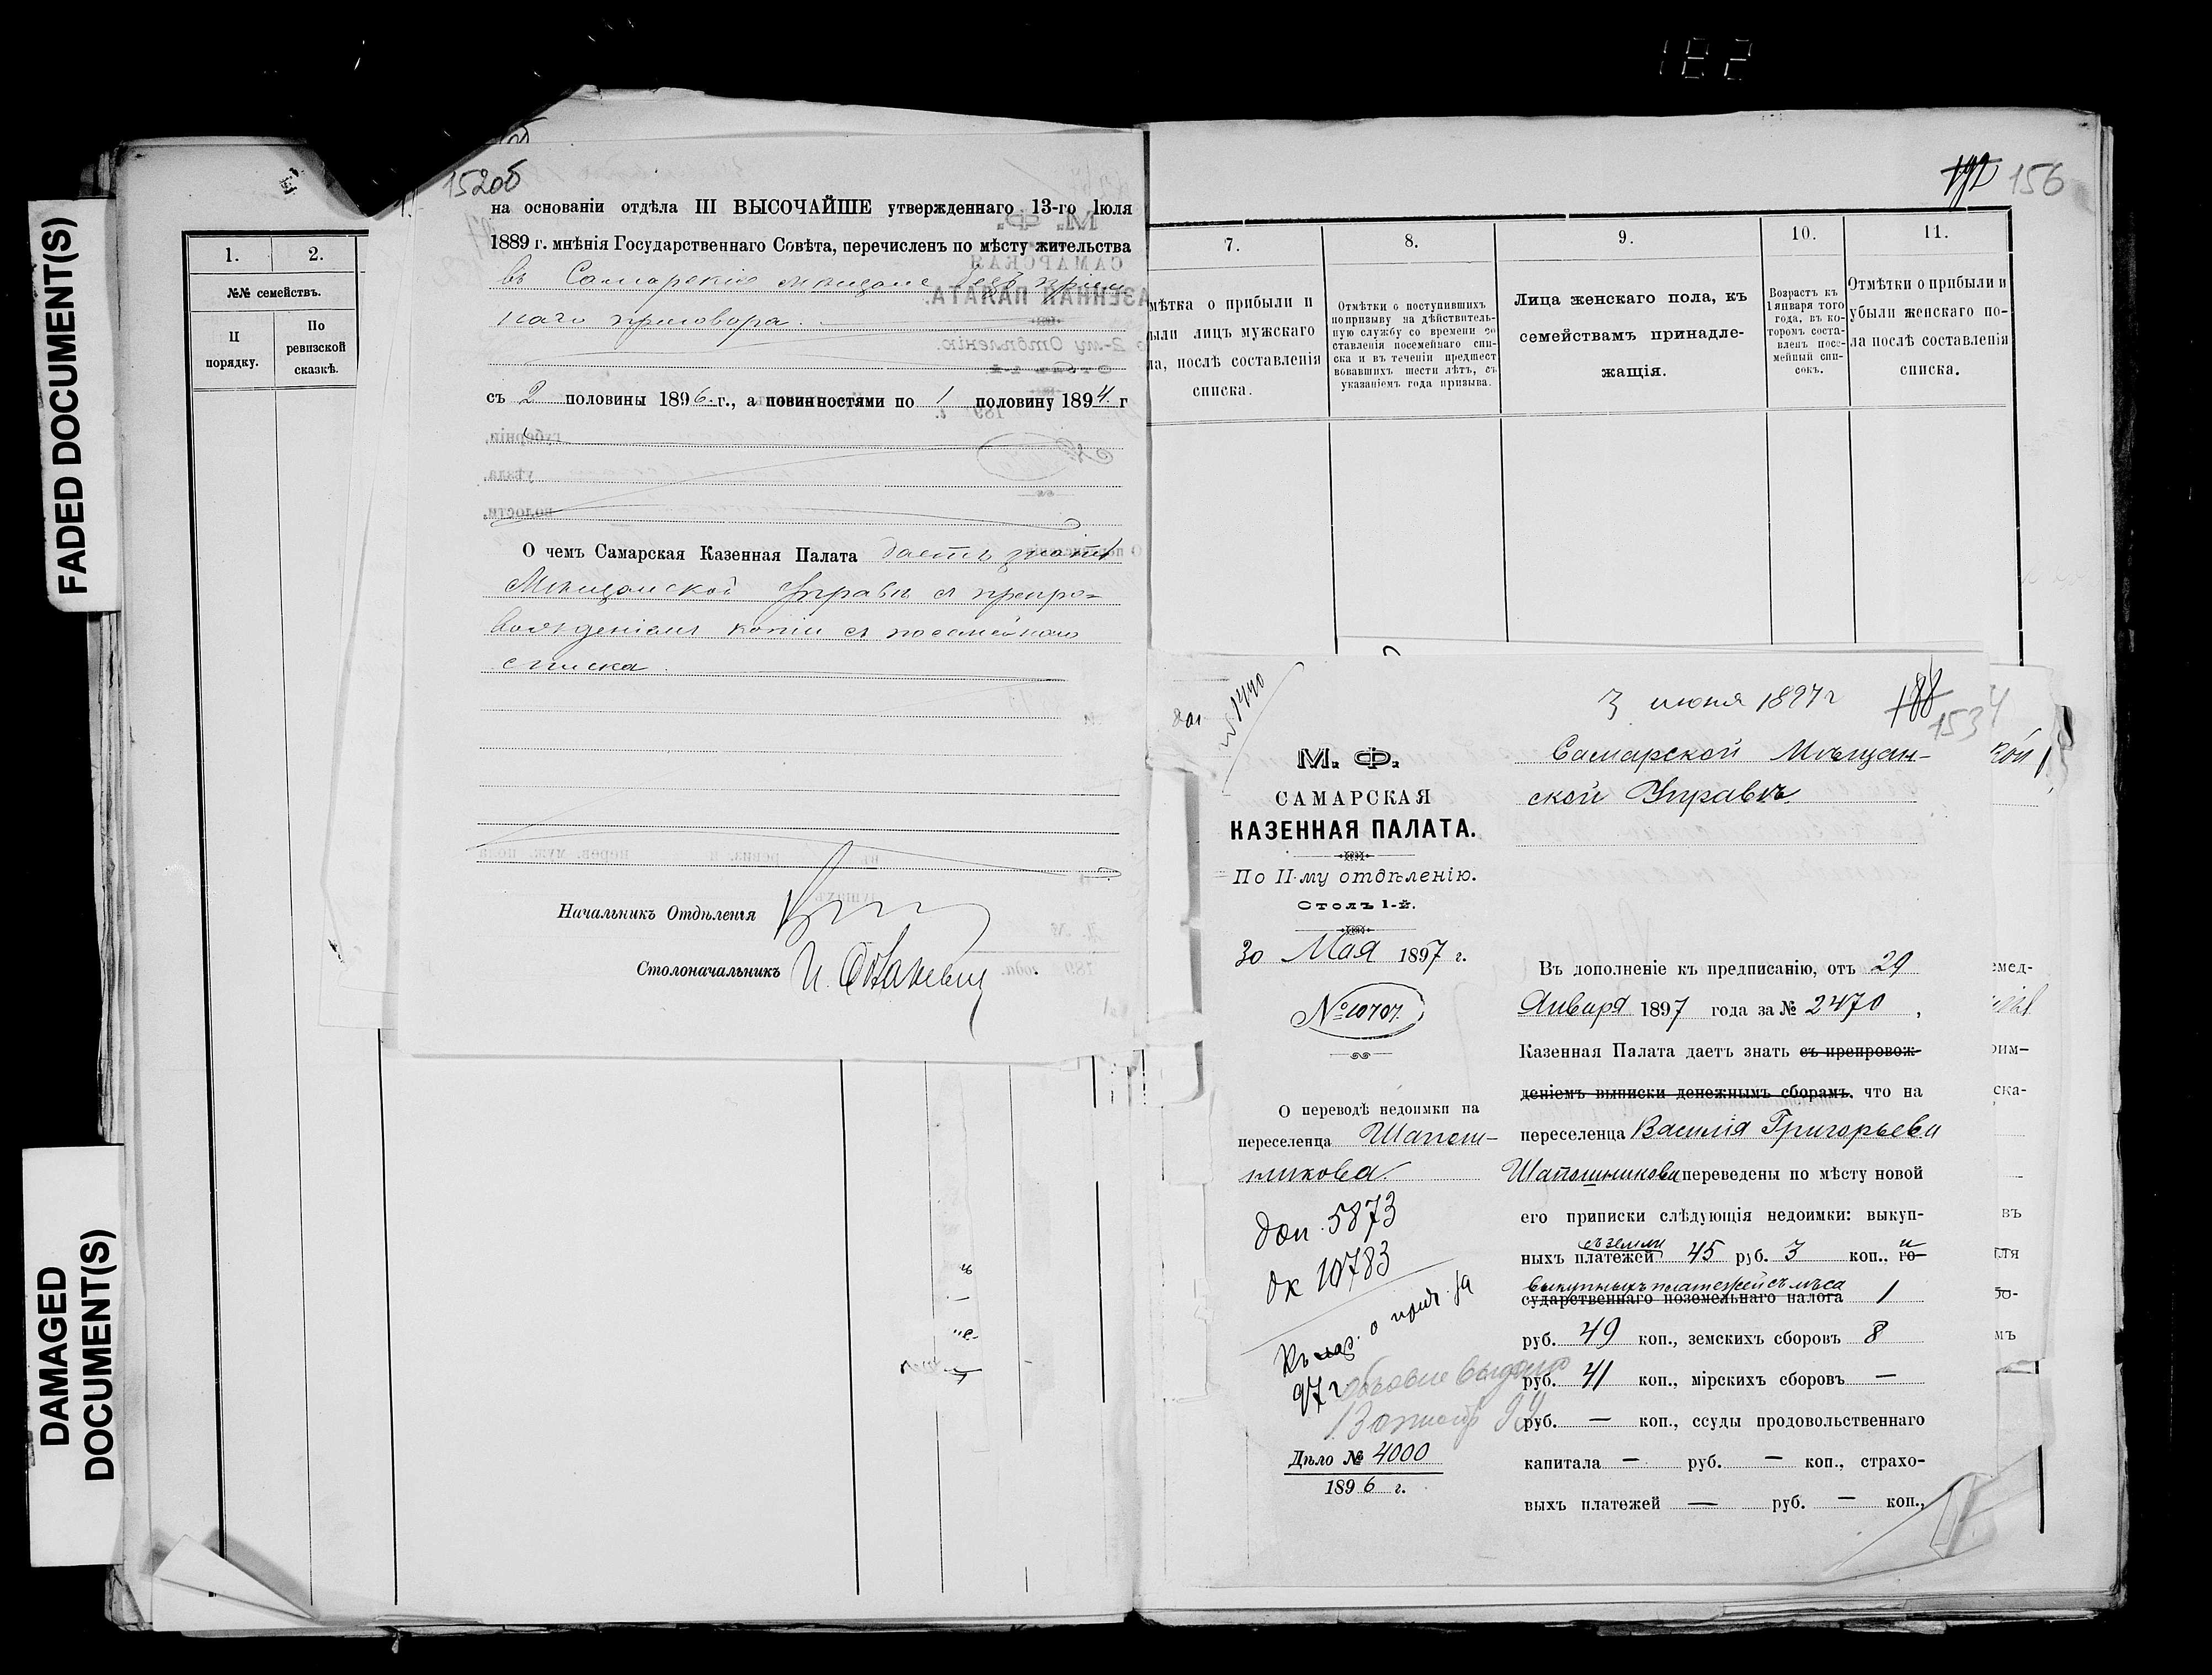 182
FADED DOCUMENT(S)
DAMAGED
DOCUMENT(S)
1.
2.
№№ семействъ.
П
порядку.
По
ревизской
сказкѣ.
152об
на основаніи отдѣла III ВЫСОЧАЙШЕ утвержденнаго 13-го Іюля
1889 г. мнѣнія Государственнаго Совѣта, перечисленъ по мѣсту жительства
въ Самарскіе мѣщане безъ пріем
наго приговора.
съ 2 половины 1896 г., а повинностями по 1 половину 1894 г
О чемъ Самарская Казенная Палата даетъ знать
Мѣщанской Управѣ съ препро=
вожденіемъ копіи съ посемейнаго
списка.
Начальникъ Отдѣленія
Столоначальникъ
192 156
7.
8.
9.
10.
11.
мѣтка о прибыли и
ыли лицъ мужскаго
ла, послѣ составленія
списка.
Отмѣтки о поступившихъ
по призыву на дѣйствитель-
ную службу со времени со
ставленія посемейнаго спи-
ска и въ теченіи предшест
вовавшихъ шести лѣтъ, съ
указаніемъ года призыва.
Лица женскаго пола, къ
семействамъ принадле-
жащія.
Возрастъ къ
1 января того
года, въ ко-
торомъ соста-
вленъ посе-
мейный спи-
сокъ.
Отмѣтки о прибыли и
убыли женскаго по-
ла послѣ составленія
списка.
3 июня 1897 г
188
153
4
М. Ф.
САМАРСКАЯ
КАЗЕННАЯ ПАЛАТА.
По II-му отдѣленію.
Столъ 1-й.
30 Мая 1897 г.
№ 10707.
О переводѣ недоимки на
переселенца Шапош-
никова.
доп. 5873
дк 10783
97 г.
Дѣло № 4000
1896 г.
Самарской Мѣщан-
ской Управѣ.
Въ дополненіе къ предписанію, отъ 29
Января 1897 года за № 2470,
Казенная Палата даетъ знать съ препровож-
деніемъ выписки денежнымъ сборамъ, что на
переселенца Василія Григорьева
Шапошникова переведены по мѣсту новой
его приписки слѣдующія недоимки: выкуп-
съ земли
ныхъ платежей 45 руб. 3 коп., и го-
выкупныхъ платежей съ лѣса
сударственнаго поземельнаго налога 1
руб. 49 коп., земскихъ сборовъ 8
руб. 41 коп., мірскихъ сборовъ —
руб. — коп., ссуды продовольственнаго
капитала — руб. — коп., страхо-
выхъ платежей — руб. — коп.,
кой